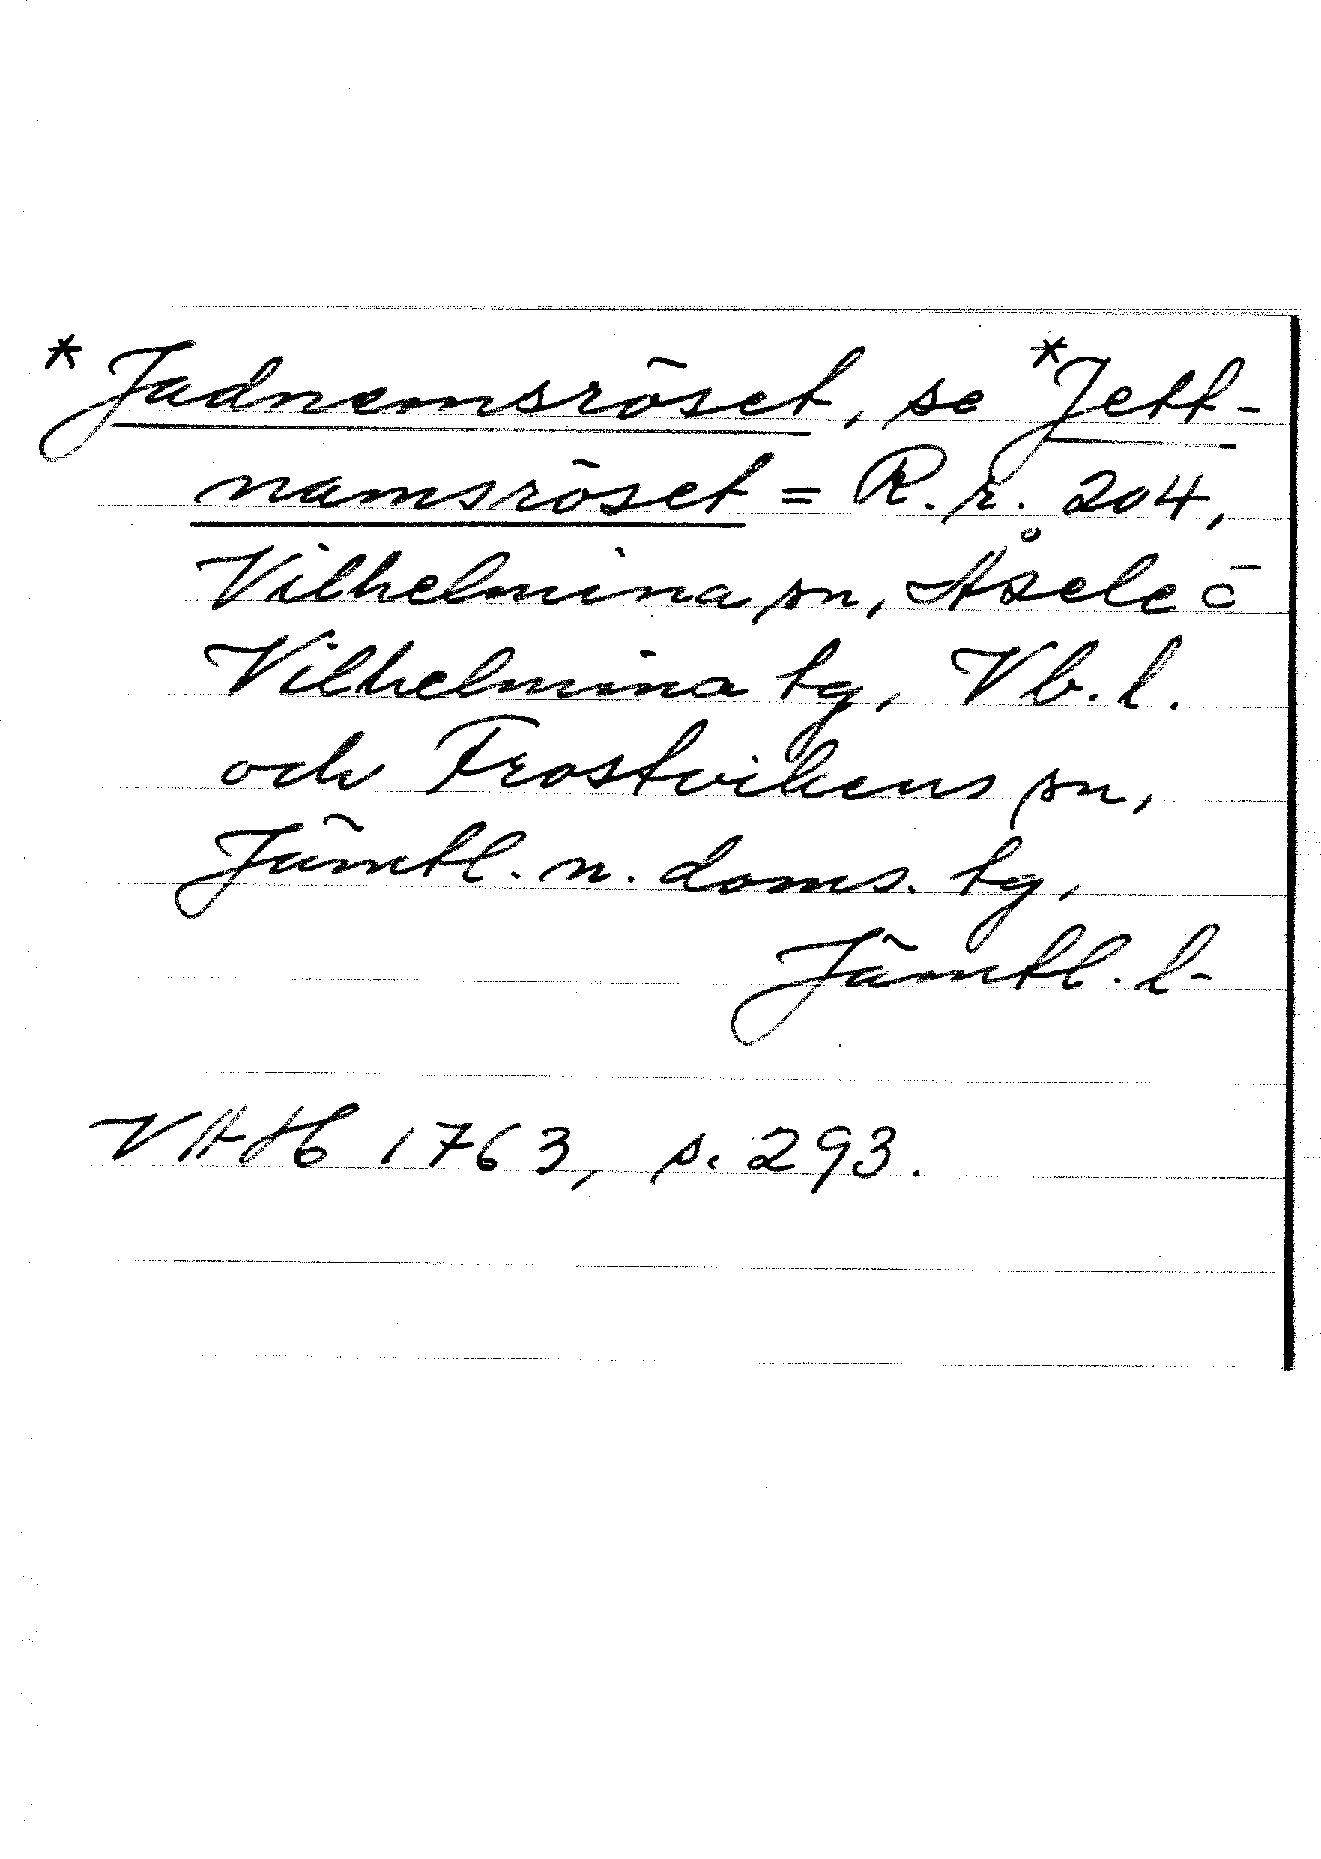 * Jadnemsröset, se *Jett-
namsröset = R.r. 204,
Vilhelmina sn, Åsele o
Vilhelmina tg, Vb.l.
och Frostvikens sn,
Jämtl. n. doms. tg,
Jämtl. l.
1763, s. 293.